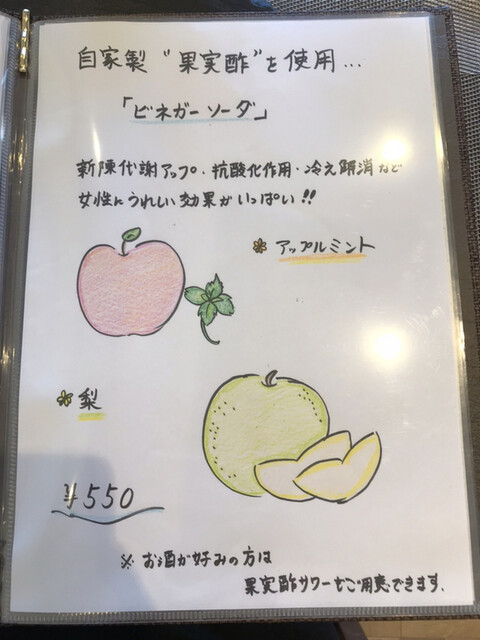 自家製 “果実酢” を使用...
「ビネガーソーダ」
新陳代謝アップ・抗酸化作用・冷え解消など
女性にうれしい効果がいっぱい!!
アップルミント
梨
¥550
※ お酒が好みの方は
果実酢サワーもご用意できます.